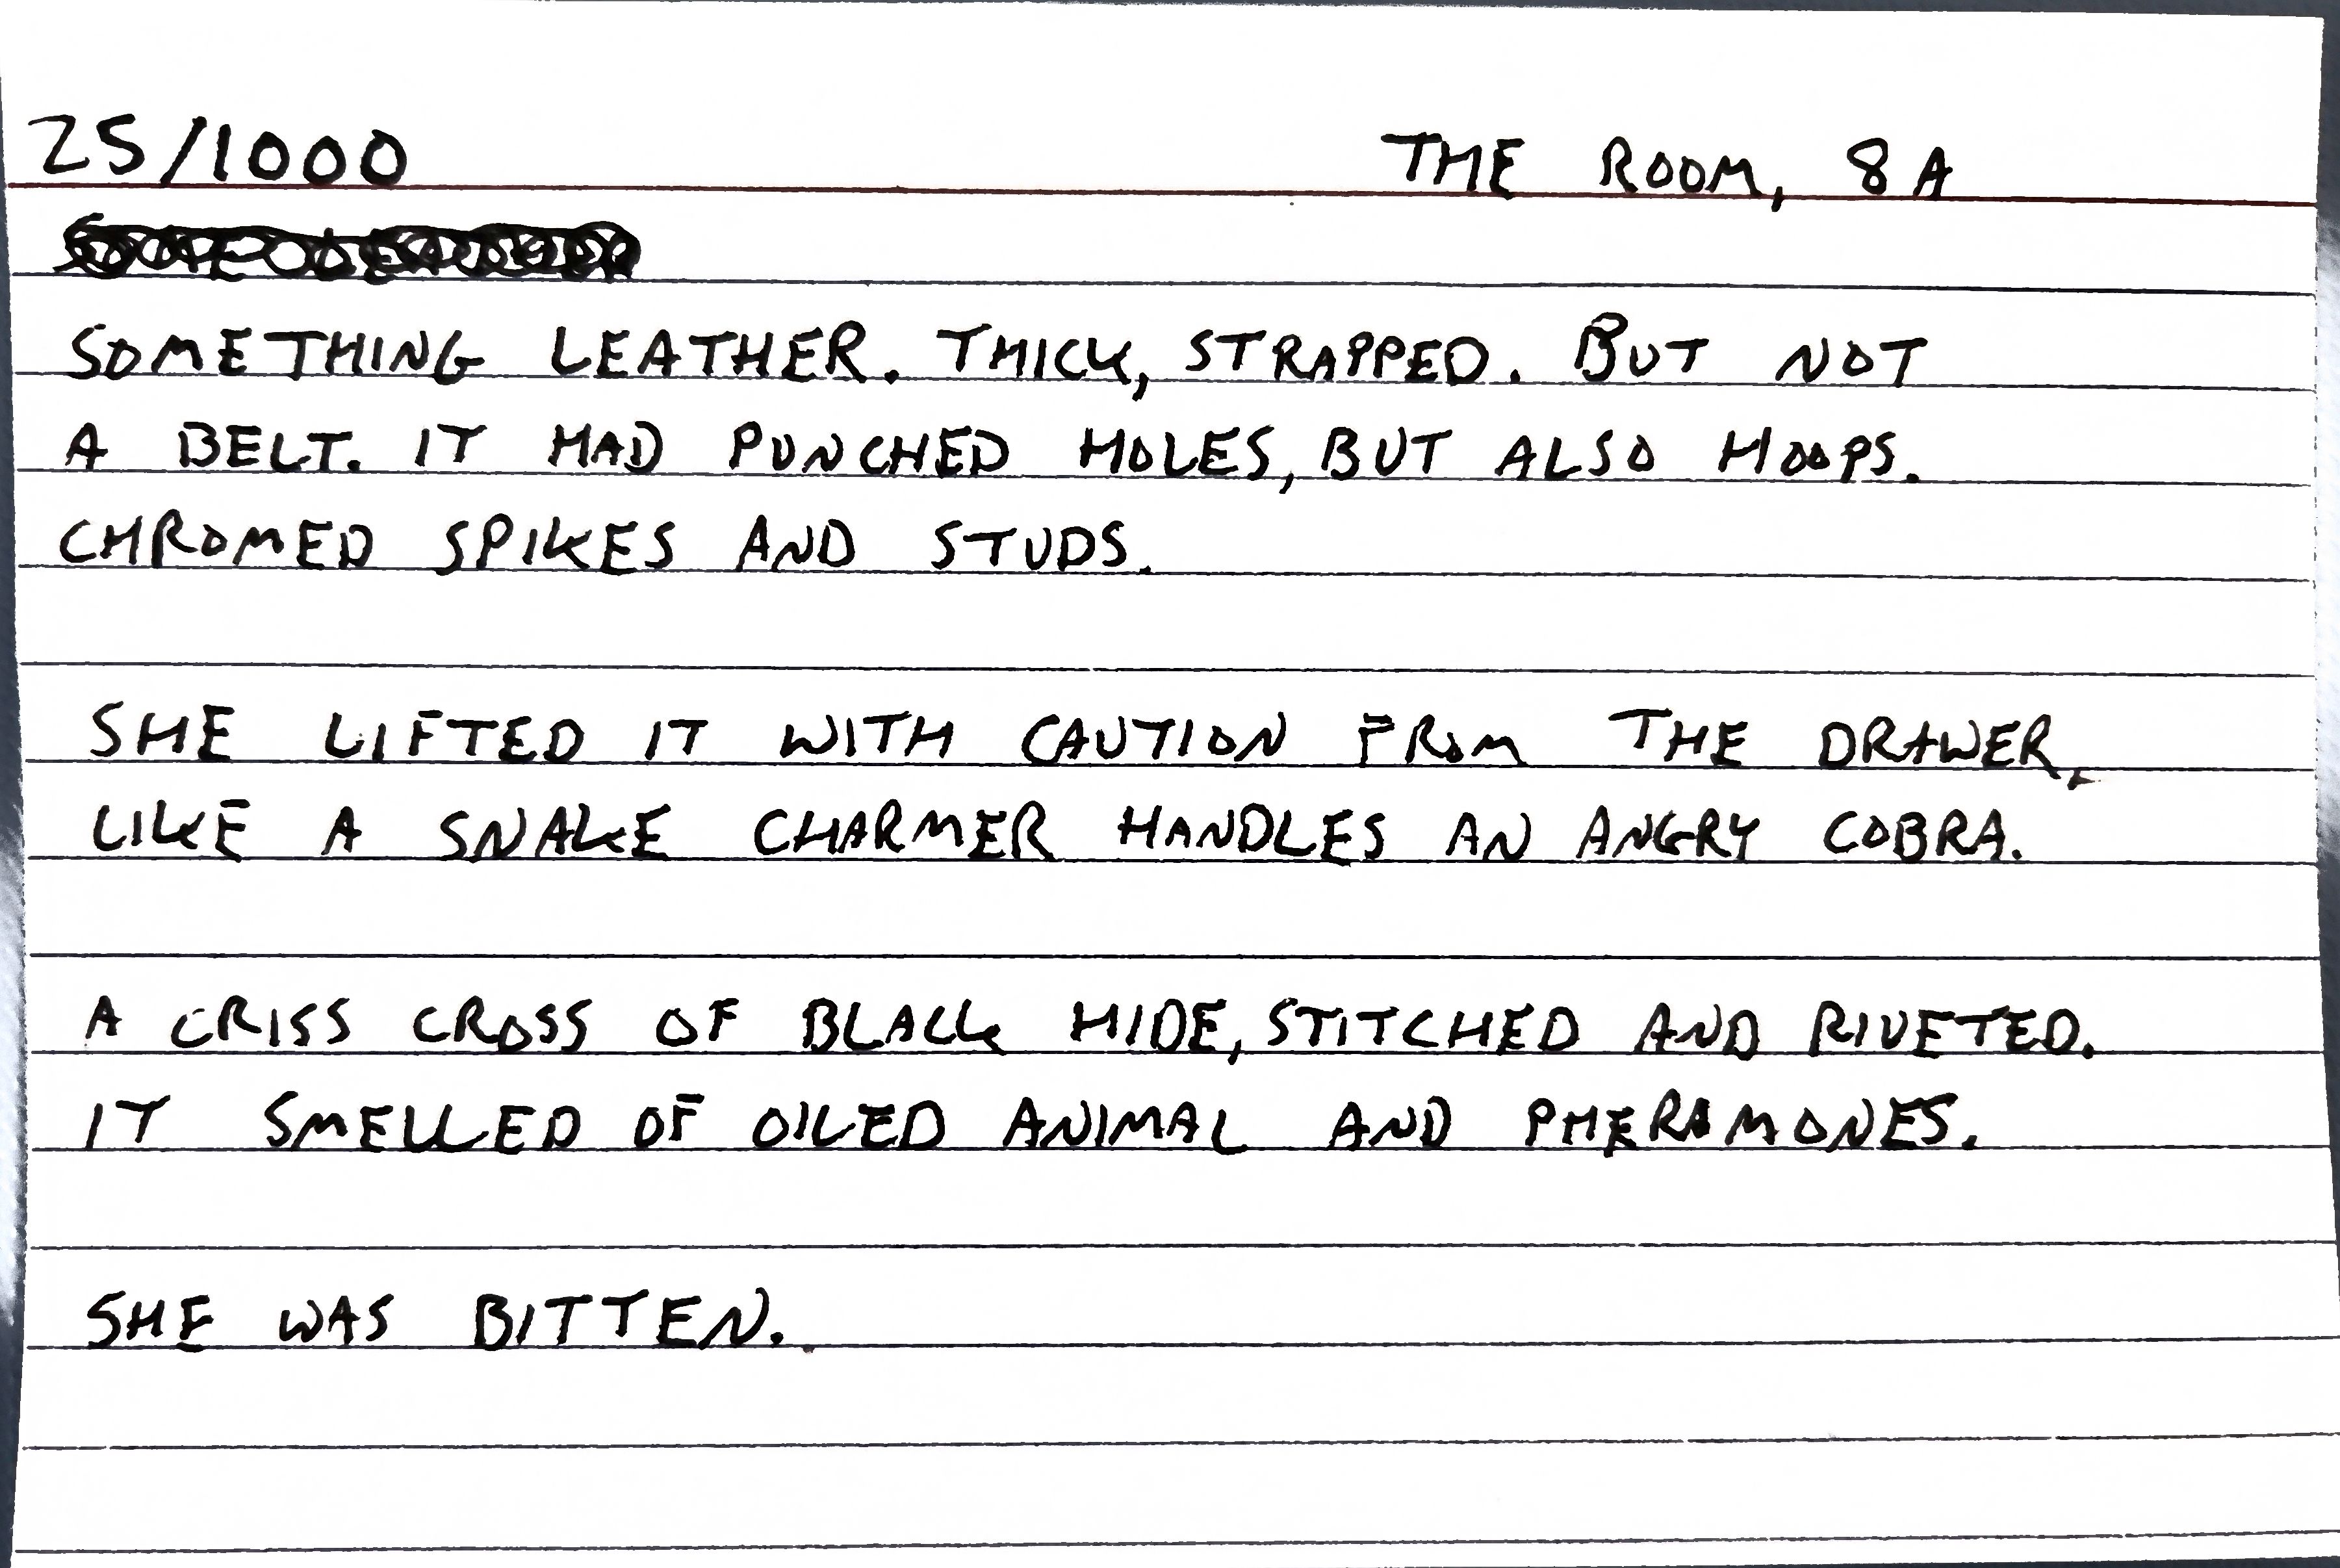 25/1000
THE ROOM, 8A
SOMETHING LEATHER. THICK, STRAPPED. BUT NOT
A BELT. IT HAD PUNCHED HOLES, BUT ALSO HOOPS.
CHROMED SPIKES AND STUDS.
SHE LIFTED IT WITH CAUTION FROM THE DRAWER,
LIKE A SNAKE CHARMER HANDLES AN ANGRY COBRA.
A CRISS CROSS OF BLACK HIDE, STITCHED AND RIVETED.
IT SMELLED OF OILED ANIMAL AND PHERAMONES.
SHE WAS BITTEN.